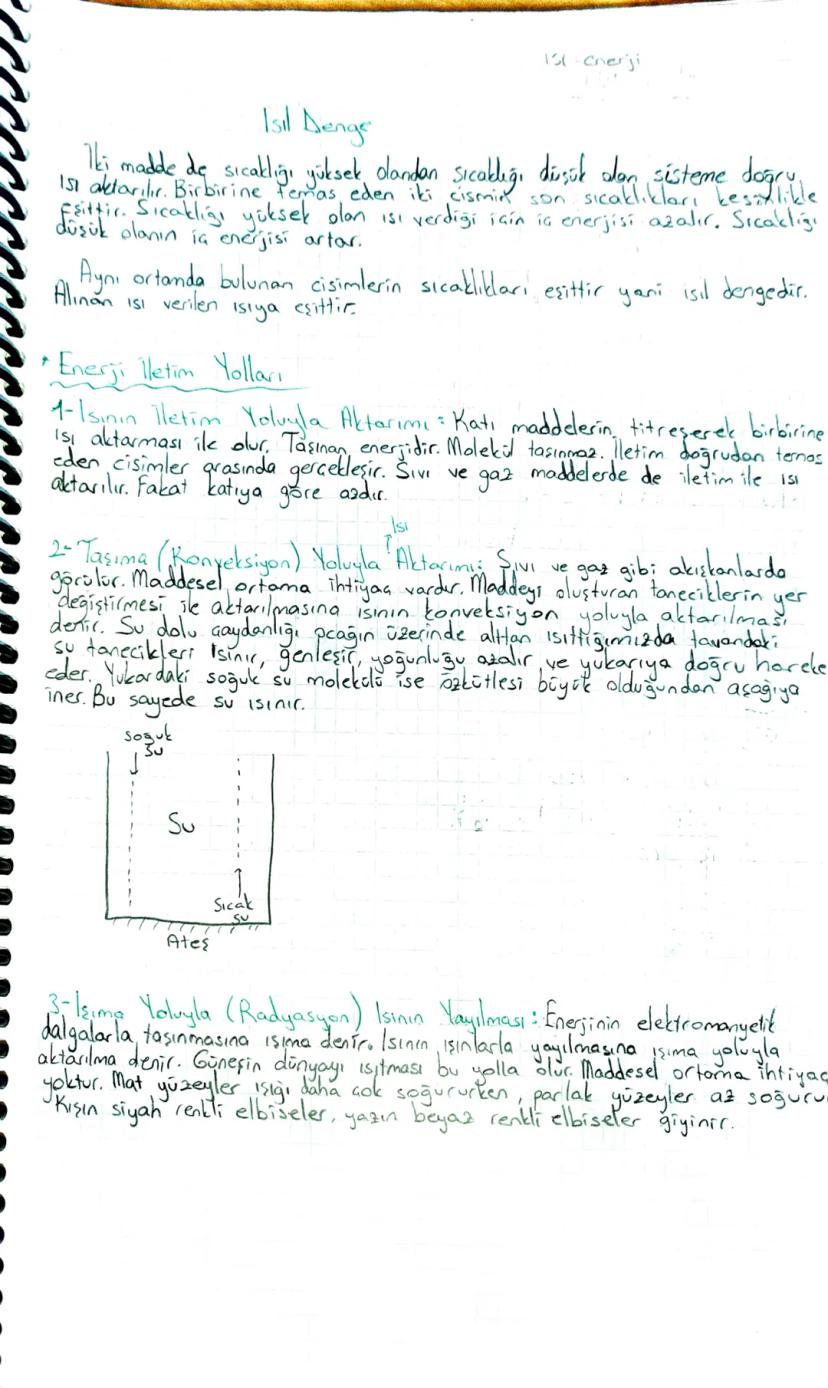 ısı enerji
Isıl Denge
İki madde de sıcaklığı yüksek olandan sıcaklığı düşük olan sisteme doğru
ısı aktarılır. Birbirine temas eden iki cismin son sıcaklıkları kesinlikle
eşittir. Sıcaklığı yüksek olan ısı verdiği için iç enerjisi azalır. Sıcaklığı
düşük olanın iç enerjisi artar.
Aynı ortamda bulunan cisimlerin sıcaklıkları eşittir yani ısıl dengedir.
Alınan ısı verilen ısıya eşittir.
* Enerji İletim Yolları
1- Isının İletim Yoluyla Aktarımı: Katı maddelerin titreşerek birbirine
ısı aktarması ile olur. Taşınan enerjidir. Molekül taşınmaz. İletim doğrudan temas
eden cisimler arasında gerçekleşir. Sıvı ve gaz maddelerde de iletim ile ısı
aktarılır. Fakat katıya göre azdır.
Isı
2- Taşıma (Konveksiyon) Yoluyla Aktarımı: Sıvı ve gaz gibi akışkanlarda
görülür. Maddesel ortama ihtiyaç vardır. Maddeyi oluşturan taneciklerin yer
değiştirmesi ile aktarılmasına ısının konveksiyon yoluyla aktarılması
denir. Su dolu çaydanlığı ocağın üzerinde alttan ısıttığımızda tavandaki
su tanecikleri ısınır, genleşir, yoğunluğu azalır ve yukarıya doğru hareke
eder. Yukardaki soğuk su molekülü ise özkütlesi büyük olduğundan aşağıya
iner. Bu sayede su ısınır.
soğuk
su
Su
Sıcak
su
Ateş
3- Işıma Yoluyla (Radyasyon) Isının Yayılması: Enerjinin elektromanyetik
dalgalarla taşınmasına ışıma denir. Isının ışınlarla yayılmasına ışıma yoluyla
aktarılma denir. Güneşin dünyayı ısıtması bu yolla olur. Maddesel ortama ihtiyaç
yoktur. Mat yüzeyler ışığı daha çok soğururken, parlak yüzeyler az soğuru
Kışın siyah renkli elbiseler, yazın beyaz renkli elbiseler giyinir.